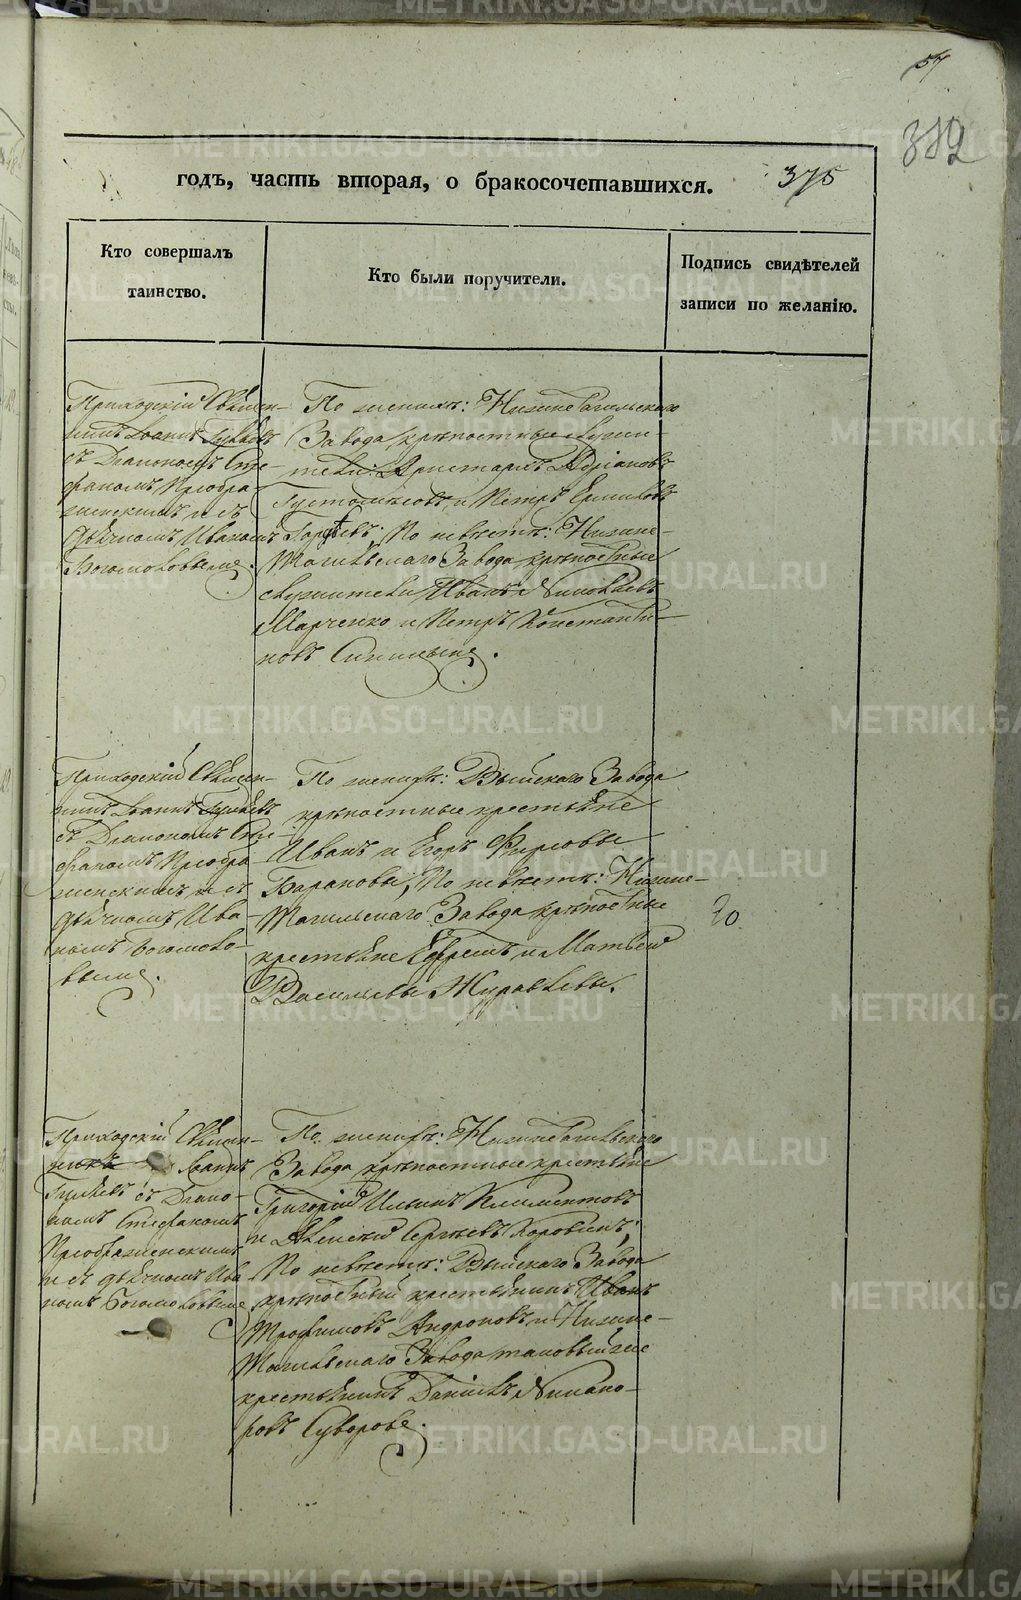 57
382
годъ, часть вторая, о бракосочетавшихся. 375
Кто совершалъ
таинство.
Кто были поручители.
Подпись свидѣтелей
записи по желанію.
Приходскій Священ-
никъ Іоаннъ
съ Діакономъ Сте-
фаномъ Преобра-
женскимъ и съ
дьячкомъ Иваномъ
Богомоловымъ.
По женихѣ: Нижнетагильскаго
Завода крѣпостные служи-
тели: Аристархъ Адріановъ
и Петръ Ермиловъ
По невѣстѣ: Нижне-
Тагильскаго Завода крѣпостные
служители Иванъ Николаевъ
Марченко и Петръ Константи-
новъ Синицынъ.
Приходскій Священ-
никъ Іоаннъ
съ Діакономъ Сте-
фаномъ Преобра-
женскимъ и съ
дьячкомъ Ива-
номъ Богомоло-
вымъ.
По женихѣ: Выйскаго Завода
крѣпостные крестьяне
Иванъ и Егоръ Фирсовы
Барановы, По невѣстѣ: Нижне-
Тагильскаго Завода крѣпостные
крестьяне Ефремъ и Матвей
Васильевы Журавлевы.
20.
Приходскій Священ-
никъ Іоаннъ
съ Діако-
номъ Стефаномъ
Преображенскимъ
и съ дьячкомъ Ива-
номъ Богомоловымъ
По женихѣ: Нижнетагильскаго
Завода крѣпостные крестьяне
Григорій Ильинъ Климентовъ
и Алексѣй Сергѣевъ Коровинъ;
По невѣстѣ: Выйскаго Завода
крѣпостный крестьянинъ Иванъ
Трофимовъ Андроновъ и Нижне-
Тагильскаго Завода таковый же
крестьянинъ Даніилъ Никано-
ровъ Суворовъ.
METRIKI.GASO-URAL.RU